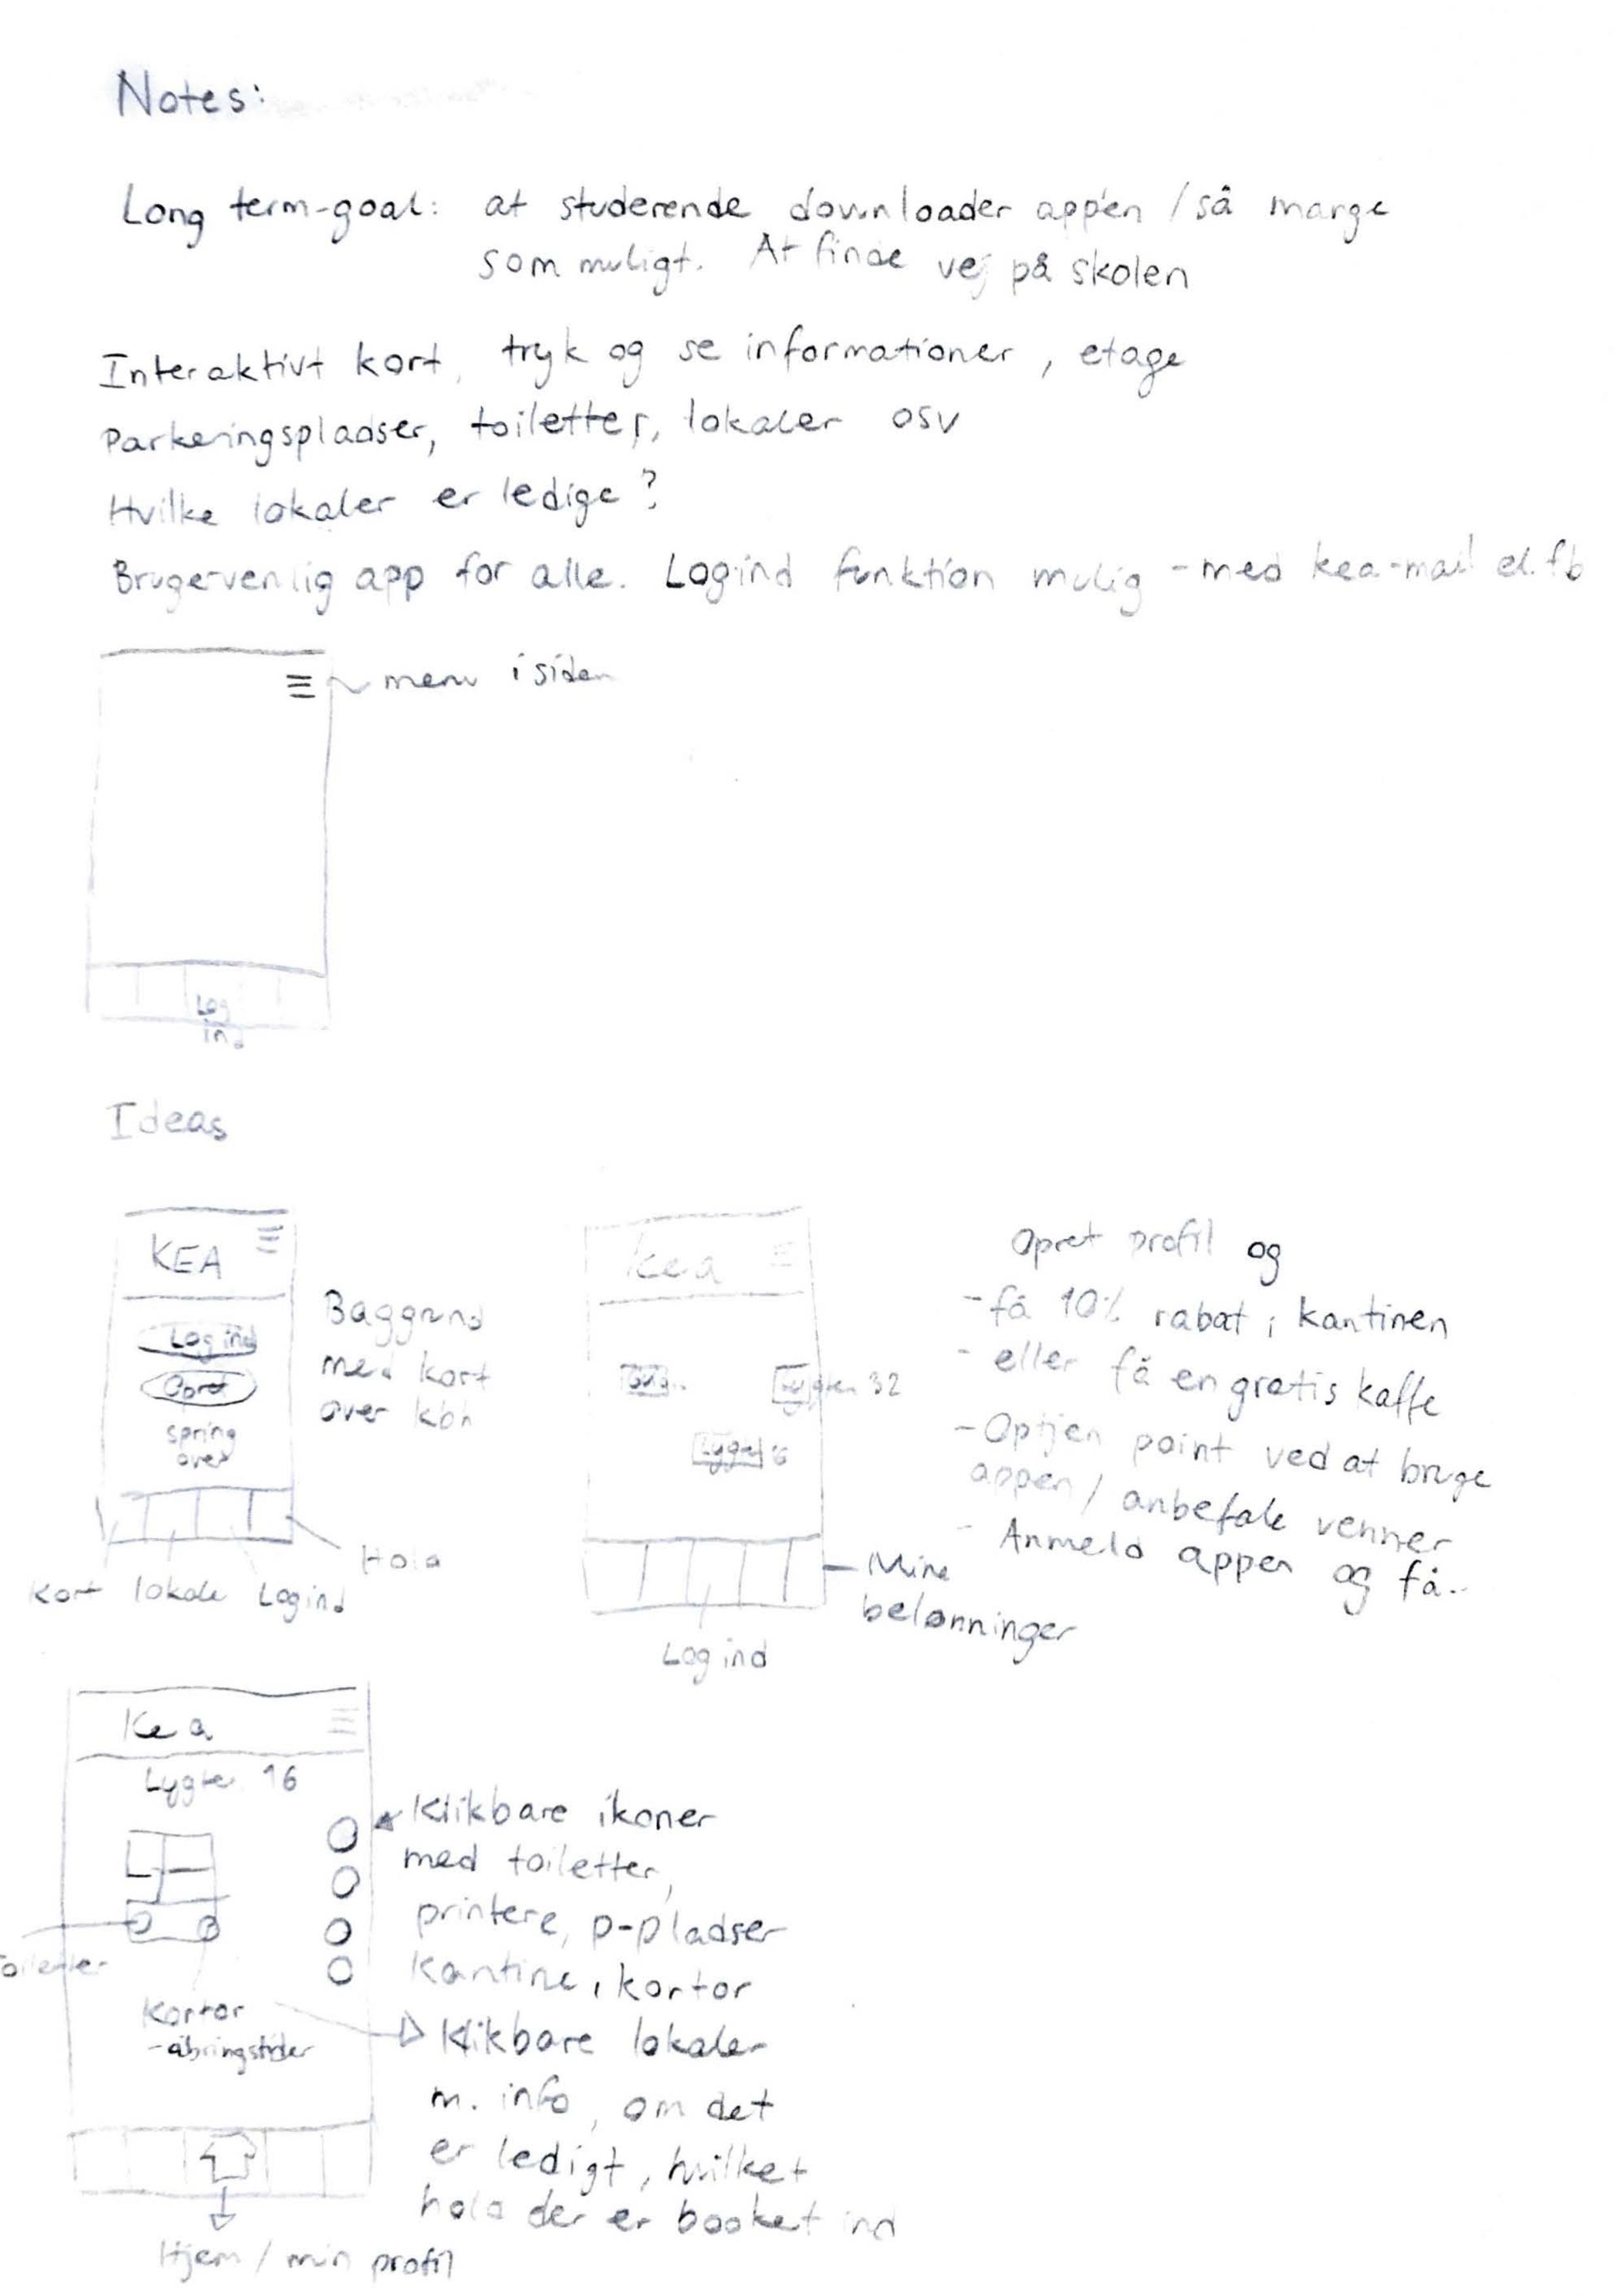 Notes:
Long term-goal: at studerende downloader appen / så mange
som muligt. At finde vej på skolen
Interaktivt kort, tryk og se informationer, etage
Parkeringspladser, toiletter, lokaler osv
Hvilke lokaler er ledige?
Brugervenlig app for alle. Logind funktion mulig - med kea-mail el. fb
menu i siden
Log
ind
Ideas
KEA
Log ind
Opret
spring
over
Baggrund
med kort
over kbh
Hold
Kort lokale Logind
Kea
Lygten 32
Lygten 16
Mine
belønninger
Log ind
Opret profil og
- få 10% rabat i kantinen
- eller få en gratis kaffe
- Optjen point ved at bruge
appen / anbefale venner
- Anmeld appen og få..
Kea
Lygten 16
Toiletter
Kontor
- åbningstider
Klikbare ikoner
med toiletter,
printere, p-pladser
Kantine, kontor
Klikbare lokaler
m. info, om det
er ledigt, hvilket
hold der er booket ind
Hjem / min profil